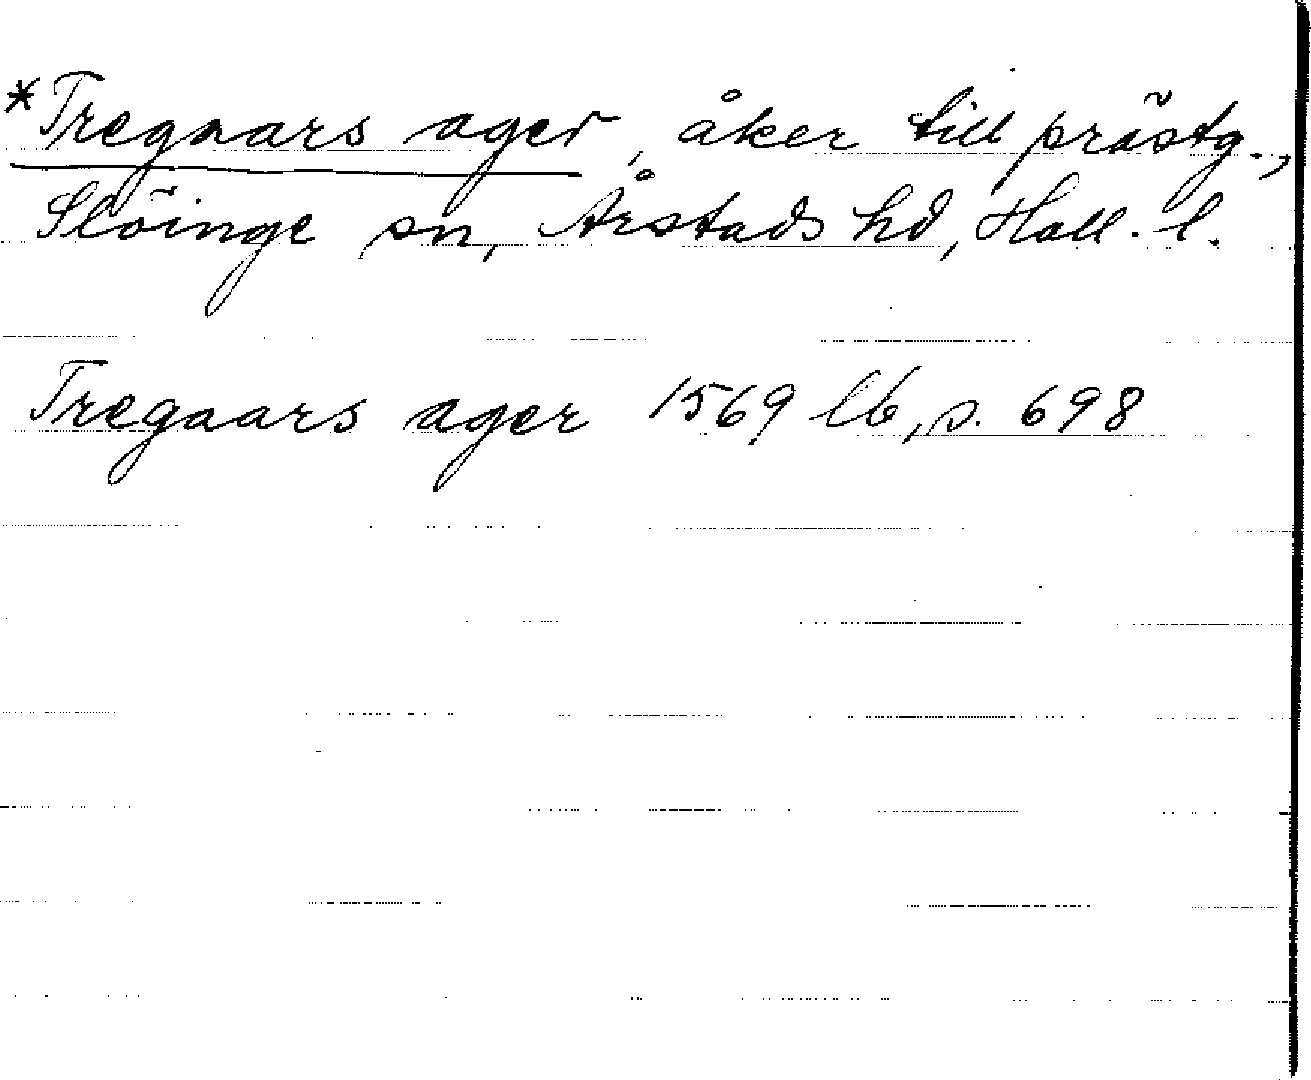 *Tregaars ager, åker till prästg.,
Slöinge sn, Årstads hd, Hall. l.
Tregaars ager 1569 lb, s. 698